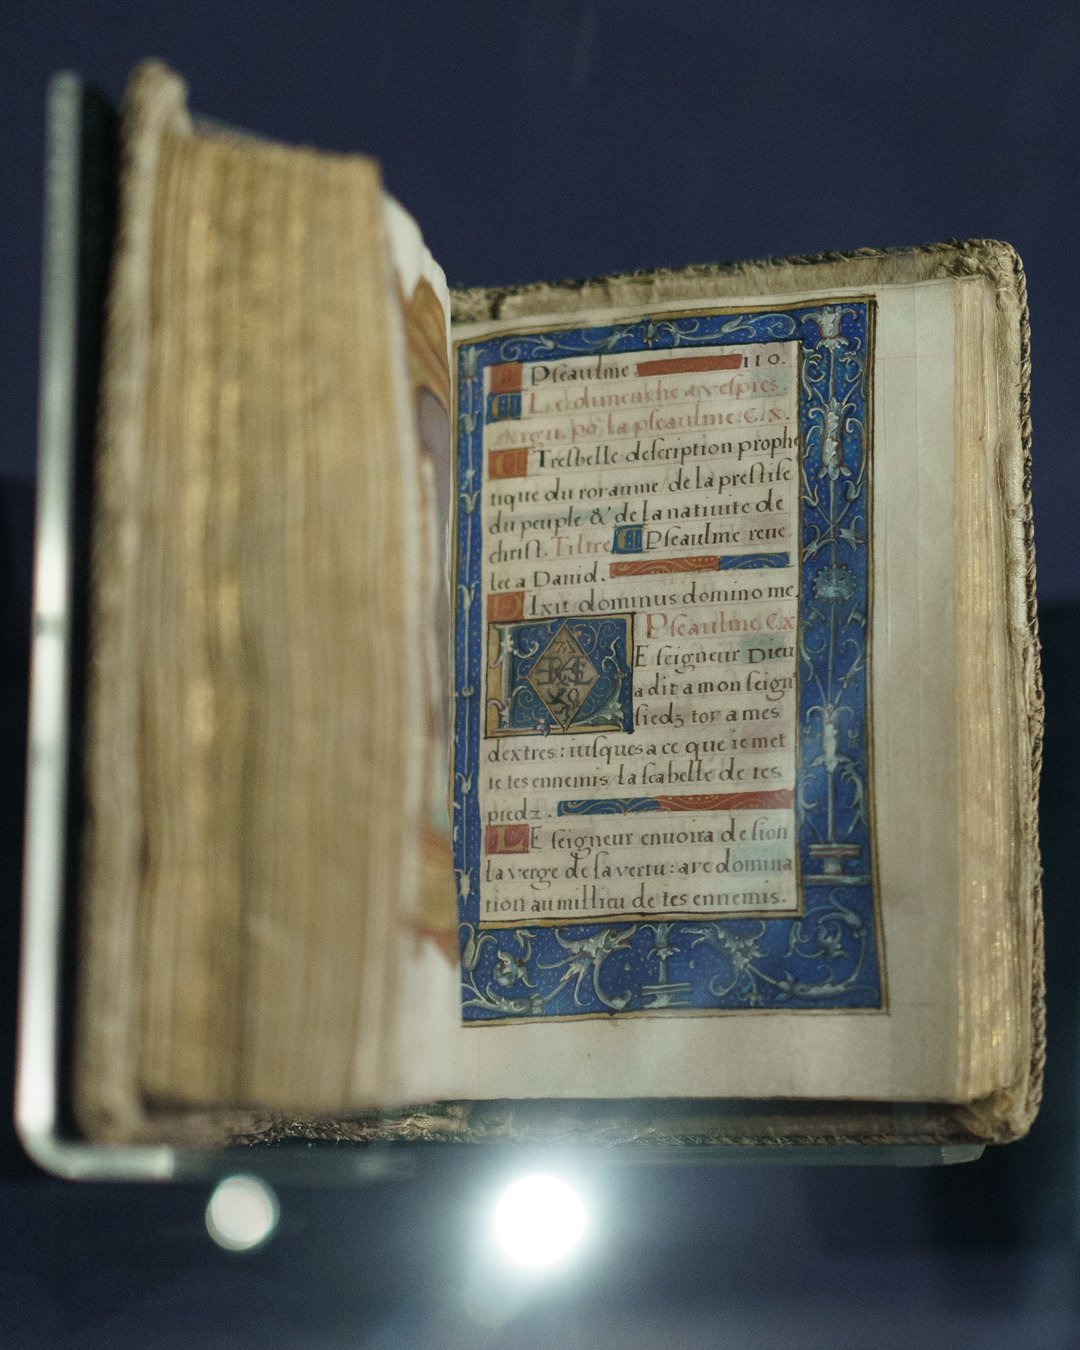 Pſeaulme 110.
Le dimenche a veſpres.
Argu. po² la pſeaulme. C. x.
Treſbelle deſcription prophe
tique du royaume / de la preſtiſe
du peuple & de la natiuite de
chriſt. Tiltre Pſeaulme reue
lee a Dauid.
DIxit dominus domino me.
Pſeaulme. Cx
LE ſeigneur Dieu
a dit a mon ſeign²
ſiedz toy a mes
dextres : iuſques a ce que ie met
te tes ennemis la ſcabelle de tes
piedz .
LE ſeigneur enuoira de ſion
la verge de ſa vertu : aye domina
tion au millieu de tes ennemis.